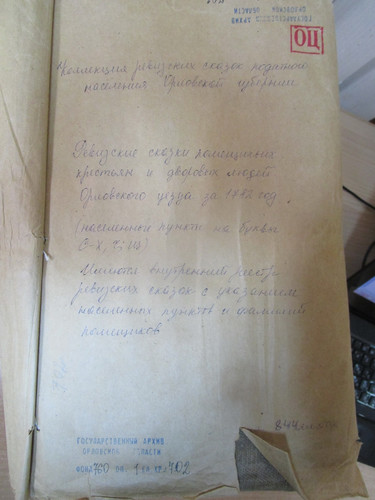 ГОСУДАРСТВЕННЫЙ АРХИВ
ОРЛОВСКОЙ ОБЛАСТИ
ОЦ
Коллекция ревизских сказок податного
населения Орловской губернии
Ревизские сказки помещичьих
крестьян и дворовых людей
Орловского уезда за год
(населенные пункты на буквы
Имеются внутренний реестр
ревизских сказок с указанием
населенных пунктов и фамилий
помещиков
ГОСУДАРСТВЕННЫЙ АРХИВ
ОРЛОВСКОЙ ОБЛАСТИ
ФОНД 760 ОП. 1